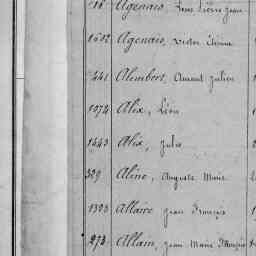 16 Agenais, Jean Pierre Jean
1612 Agenais, Victor Etienne
441 Alembert, Amant Julien
1074 Alix, Léon
1443 Alix, Julie
329 Aline, Auguste Marie
1323 Allaire, Jean François
273 Allain, Jean Marie François